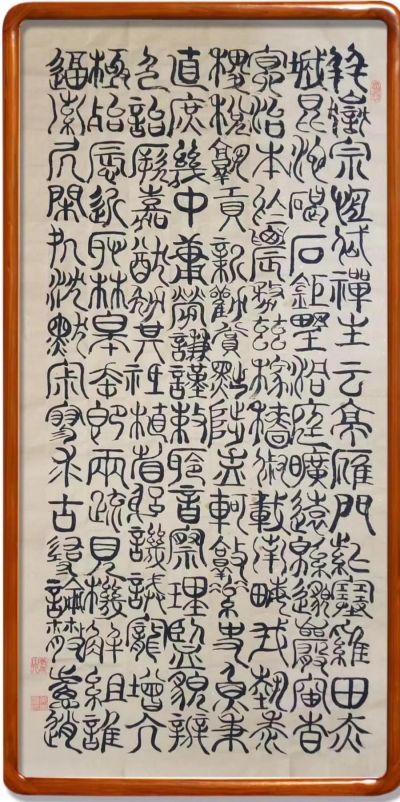 并嶽宗恆岱禪主云亭雁門紫塞雞田赤
城昆池碣石鉅野洞庭曠遠綿邈巖岫杳
冥治本於農務茲稼穡俶載南畝我藝黍
稷稅熟貢新勸賞黜陟孟軻敦素史魚秉
直庶幾中庸勞謙謹敕聆音察理鑑貌辨
色貽厥嘉猷勉其祗植省躬譏誡寵增抗
極殆辱近恥林皋幸即兩疏見機解組誰
逼索居閒處沈默寂寥求古尋論散慮逍